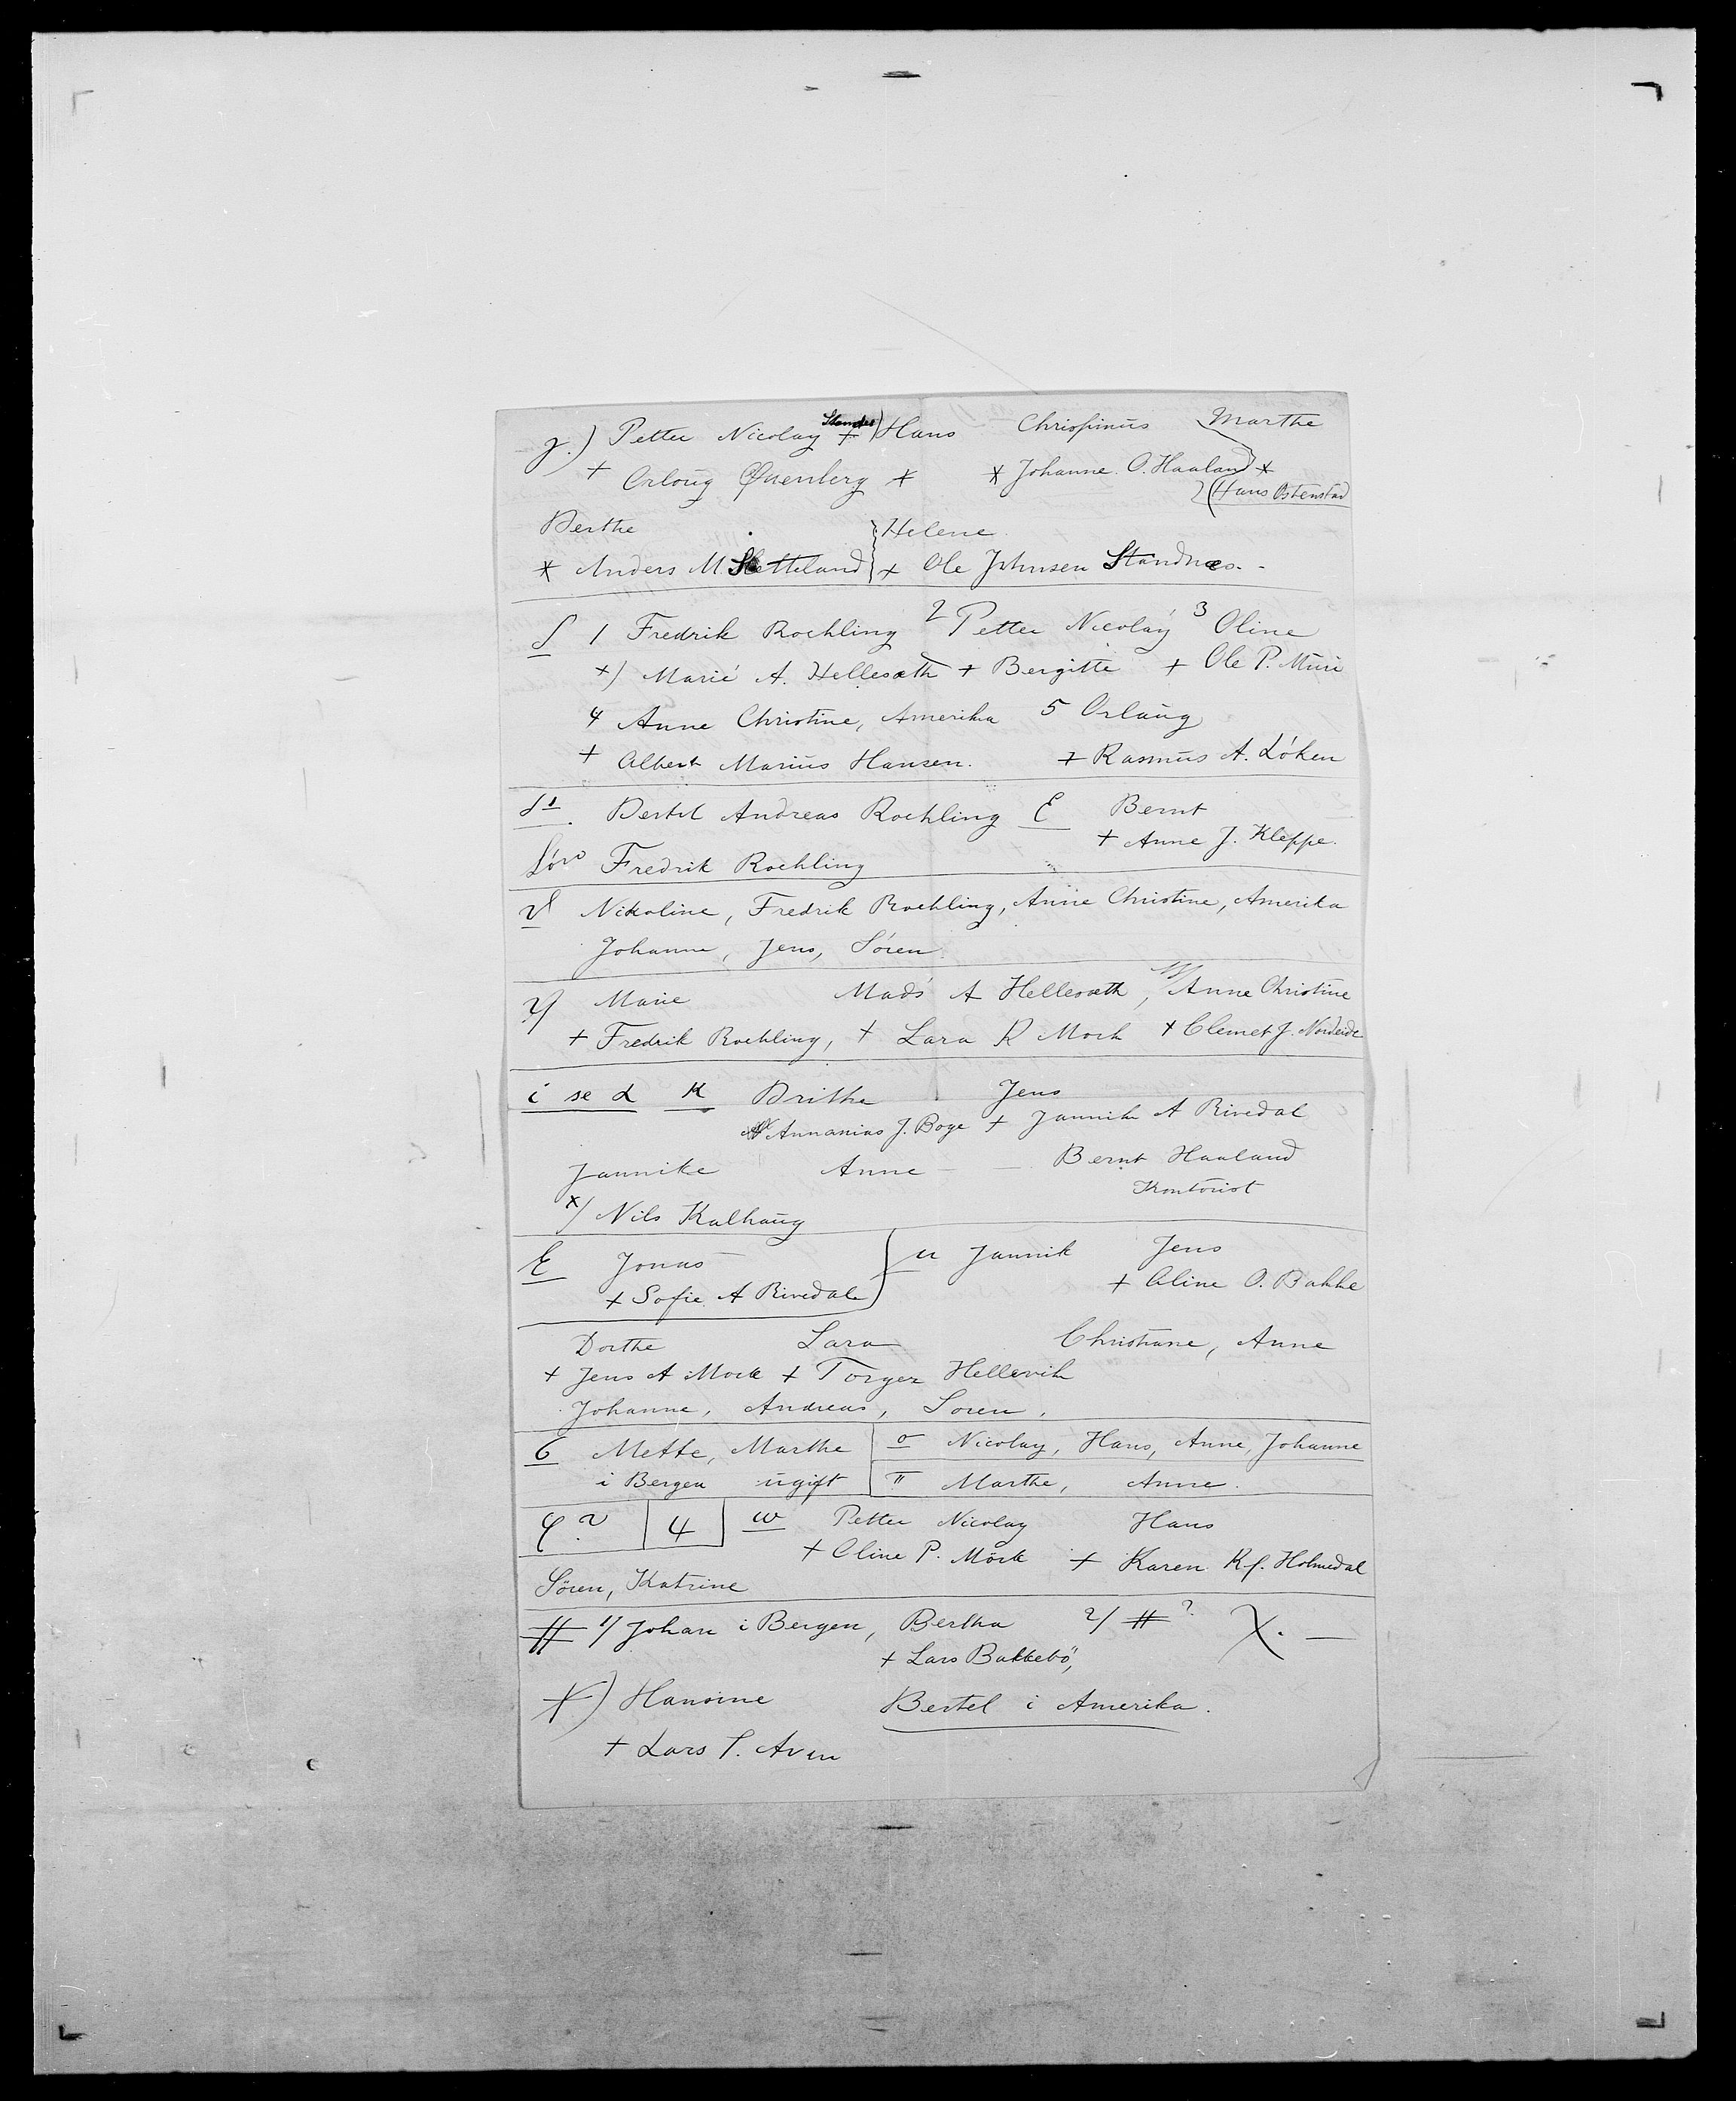 γ.) Petter Nicolay Standes + ) Hans Chrispinus Marthe
+ Orloug Qvenberg * * Johanne. O. Haaland *
2 (Hans Ostenstad
Berthe } Helene
* Anders M Sletteland } + Ole Johnsen Standnæs.
1 Fredrik Rochling 2 Petter Nicolay 3 Oline
+) Marie A. Hellesæth + Bergitte + Ole P. Muri
4 Anne Christine, Amerika 5 Orlaug
+ Albert Marius Hansen. + Rasmus A. Löken
Bertel Andreas Rochling E Bernt
+ Anne J. Kleppe.
Fredrik Rochling
Nikoline, Fredrik Rochling, Anne Christine, Amerika
Johanne, Jens, Sören.
Marie Mads A Hellesæth, Anne Christine
+ Fredrik Rochling, + Lara R Mork + Clemet J. Nordeide
i se α K Brithe Jens
Annanias J. Boge + Jannik A Rivedal
Jannike Anne Bernt Haaland
Kontorist
x) Nils Kalhaug
E Jonas } u Jannik Jens
+ Sofie A Rivedal + Oline O. Bakke
Dorthe Lara Christiane, Anne
+ Jens A Mork + Torger Hellevik
Johanne, Andreas, Soren.
6 Mette, Marthe σ Nicolay, Hans, Anne, Johanne
i Bergen ugift π Marthe, Anne.
φ ? 4 ω Petter Nicolay Hans
+ Oline P. Mörk + Karen Holmedal
Sören, Katrine
# 1/ Johan i Bergen, Bertha 2/ # ? X. —
+ Lars Bakkebö,
*) Hansine Bertel i Amerika.
+ Lars P. Aven